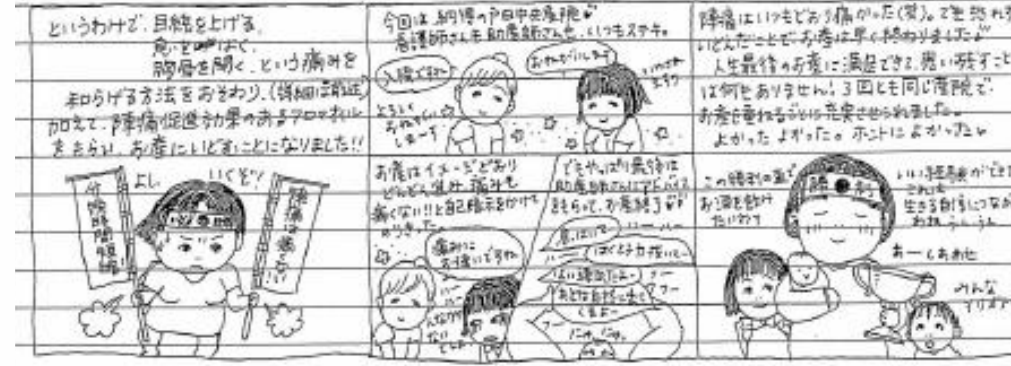 というわけで、目線を上げる、
息を呼はく、
胸唇を開く、という痛みを
和らげる方法をおそわり、(詳細は前述)
加えて、陣痛促進効果のあるアロマオイル
をもらい、お産にいどむことになりました!!
よし、いくぞ!
陣痛は痛くない!!
分娩時間短縮!
今回は、納得の戸田中央産院
看護師さんも助産師さんも、いつもステキ。
入院ですね
よろしく
おねがいしまーす
おねがいします
お産はイメージどおり
どんどん進み、痛みも
痛くない!!と自己暗示をかけて
のりきった。
痛みに
お強いですね
でもやっぱり最後は
助産師さんにアドバイス
をもらって、お産終了
息はいてー
はくとき力抜いてー
あとは自然に出て
くるよー
陣痛はいつもどおり痛かった(笑)。でも恐れな
いどんだことで、お産は早く終わりました
人生最後のお産に満足できて、思い残すこと
は何もありません!3回とも同じ産院で
お産を重ねるごとに充実させられました。
よかった よかった。ホントによかった
この勝利の宴で
お酒を飲み
たいわ
勝利
いい経験ができた
これは
生きる自信につなが
るわね うんうん
あーしあわせ
みんな
アリガト